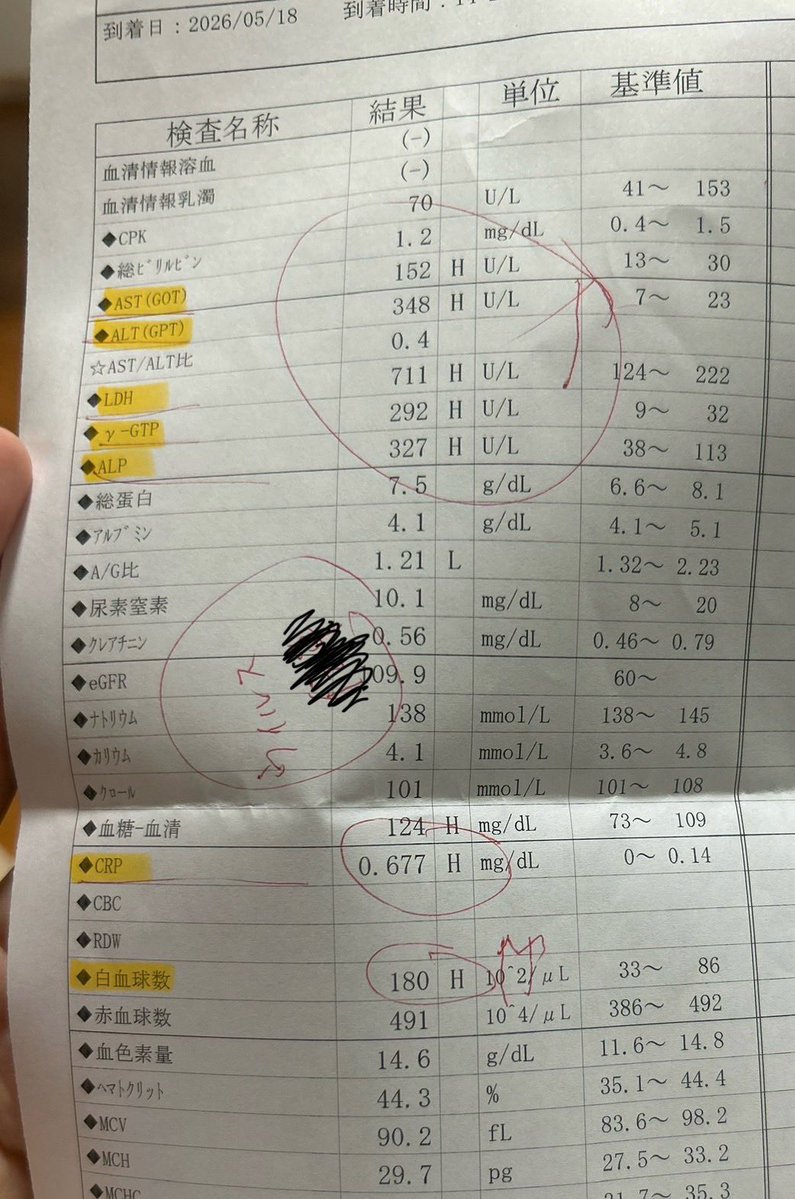 到着日：2026/05/18 到着時間：
検査名称 結果 単位 基準値
血清情報溶血 (-)
血清情報乳濁 (-)
◆CPK 70 U/L 41～ 153
◆総ﾋﾞﾘﾙﾋﾞﾝ 1.2 mg/dL 0.4～ 1.5
◆AST(GOT) 152 H U/L 13～ 30
◆ALT(GPT) 348 H U/L 7～ 23
☆AST/ALT比 0.4
◆LDH 711 H U/L 124～ 222
◆γ-GTP 292 H U/L 9～ 32
◆ALP 327 H U/L 38～ 113
◆総蛋白 7.5 g/dL 6.6～ 8.1
◆ｱﾙﾌﾞﾐﾝ 4.1 g/dL 4.1～ 5.1
◆A/G比 1.21 L 1.32～ 2.23
◆尿素窒素 10.1 mg/dL 8～ 20
◆ｸﾚｱﾁﾆﾝ 0.56 mg/dL 0.46～ 0.79
◆eGFR 09.9 60～
◆ﾅﾄﾘｳﾑ 138 mmol/L 138～ 145
◆ｶﾘｳﾑ 4.1 mmol/L 3.6～ 4.8
◆ｸﾛｰﾙ 101 mmol/L 101～ 108
◆血糖-血清 124 H mg/dL 73～ 109
◆CRP 0.677 H mg/dL 0～ 0.14
◆CBC
◆RDW
◆白血球数 180 H 10^2/μL 33～ 86
◆赤血球数 491 10^4/μL 386～ 492
◆血色素量 14.6 g/dL 11.6～ 14.8
◆ﾍﾏﾄｸﾘｯﾄ 44.3 % 35.1～ 44.4
◆MCV 90.2 fL 83.6～ 98.2
◆MCH 29.7 pg 27.5～ 33.2
◆MCHC 35.3